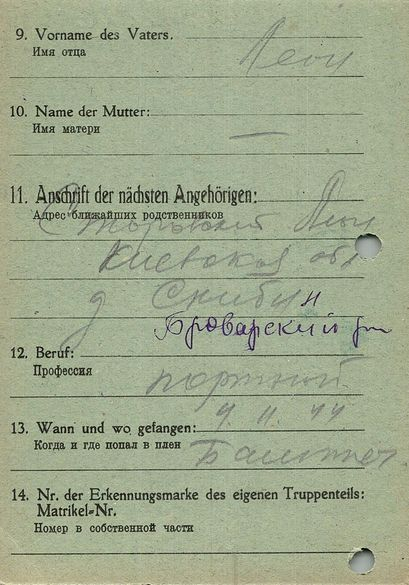 9. Vorname des Vaters.
Имя отца
Леон
10. Name der Mutter:
Имя матери
—
11. Anschrift der nächsten Angehörigen:
Адрес ближайших родственников
Леон
Киевская обл
д Скибин
Броварский
12. Beruf:
Профессия
портной
13. Wann und wo gefangen:
Когда и где попал в плен
14. Nr. der Erkennungsmarke des eigenen Truppenteils:
Matrikel-Nr.
Номер в собственной части